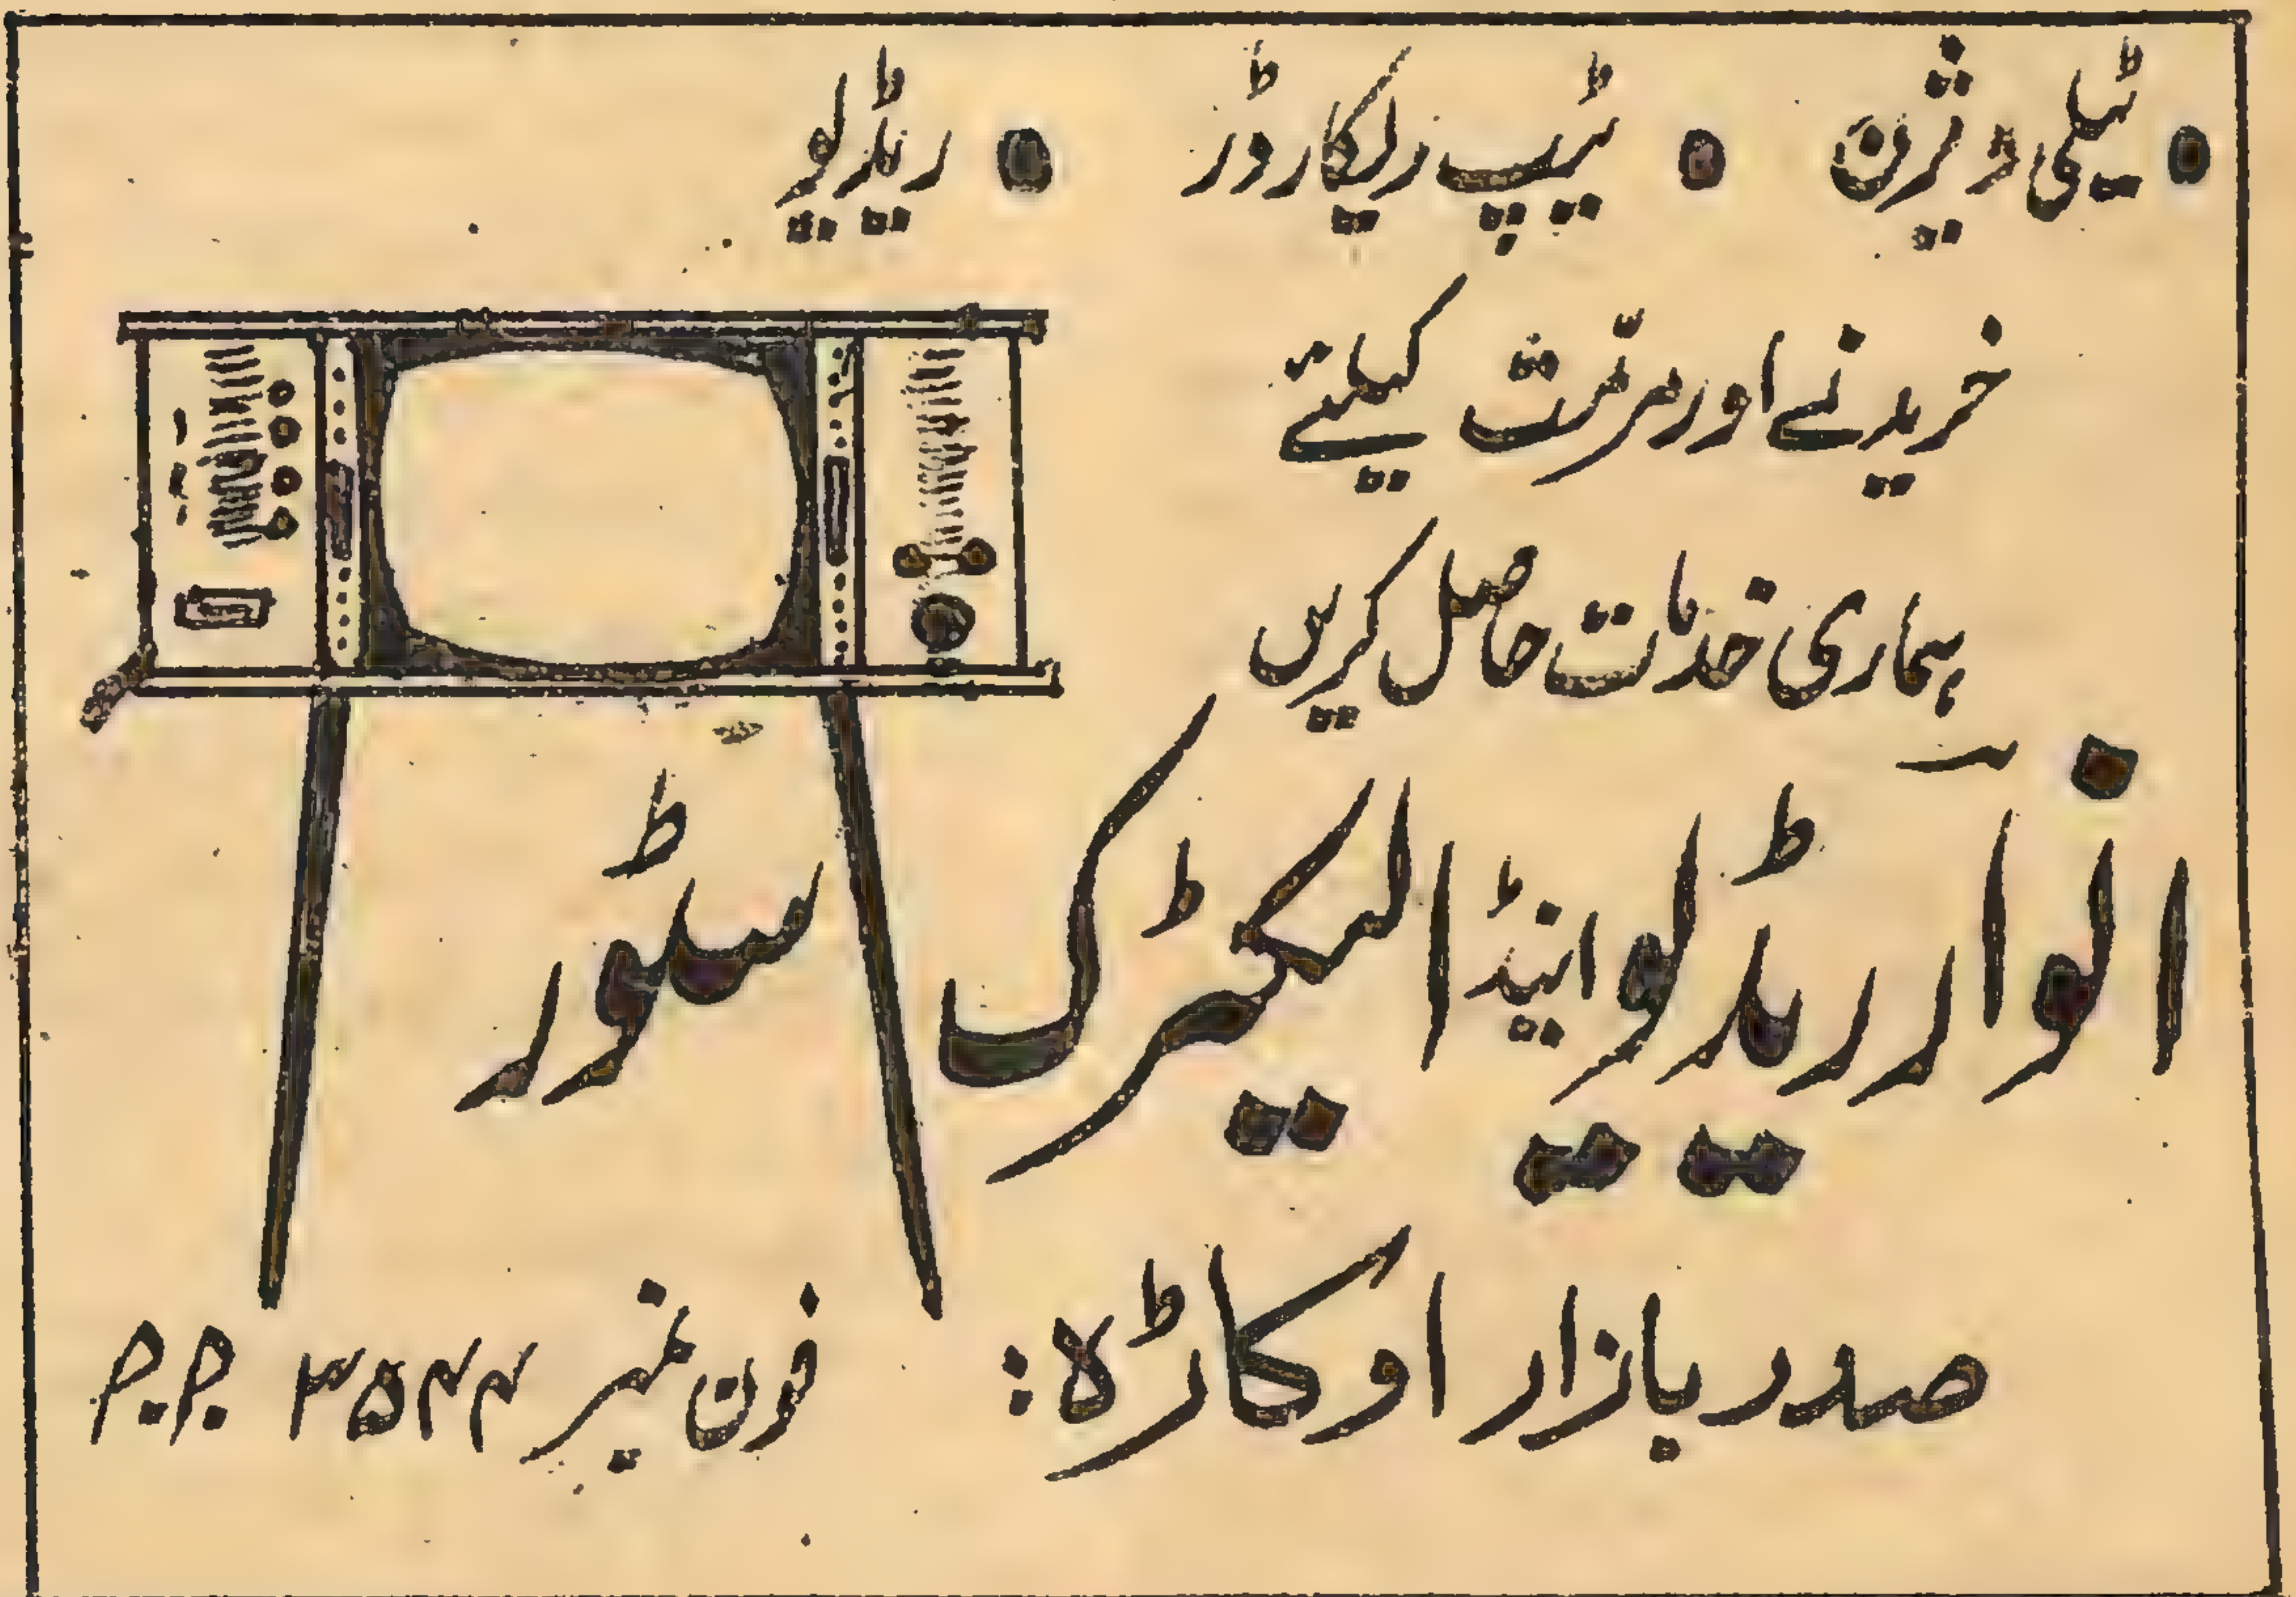 • ٹیلی ویژن • ٹیپ ریکارڈر • ریڈیو
خریدنے اور مرمّت کیلئے
ہماری خدمات حاصل کریں
انوار ریڈیو اینڈ الیکٹرک سٹور
صدر بازار اوکاڑہ: فون نمبر ۳۵۴۴ P.P